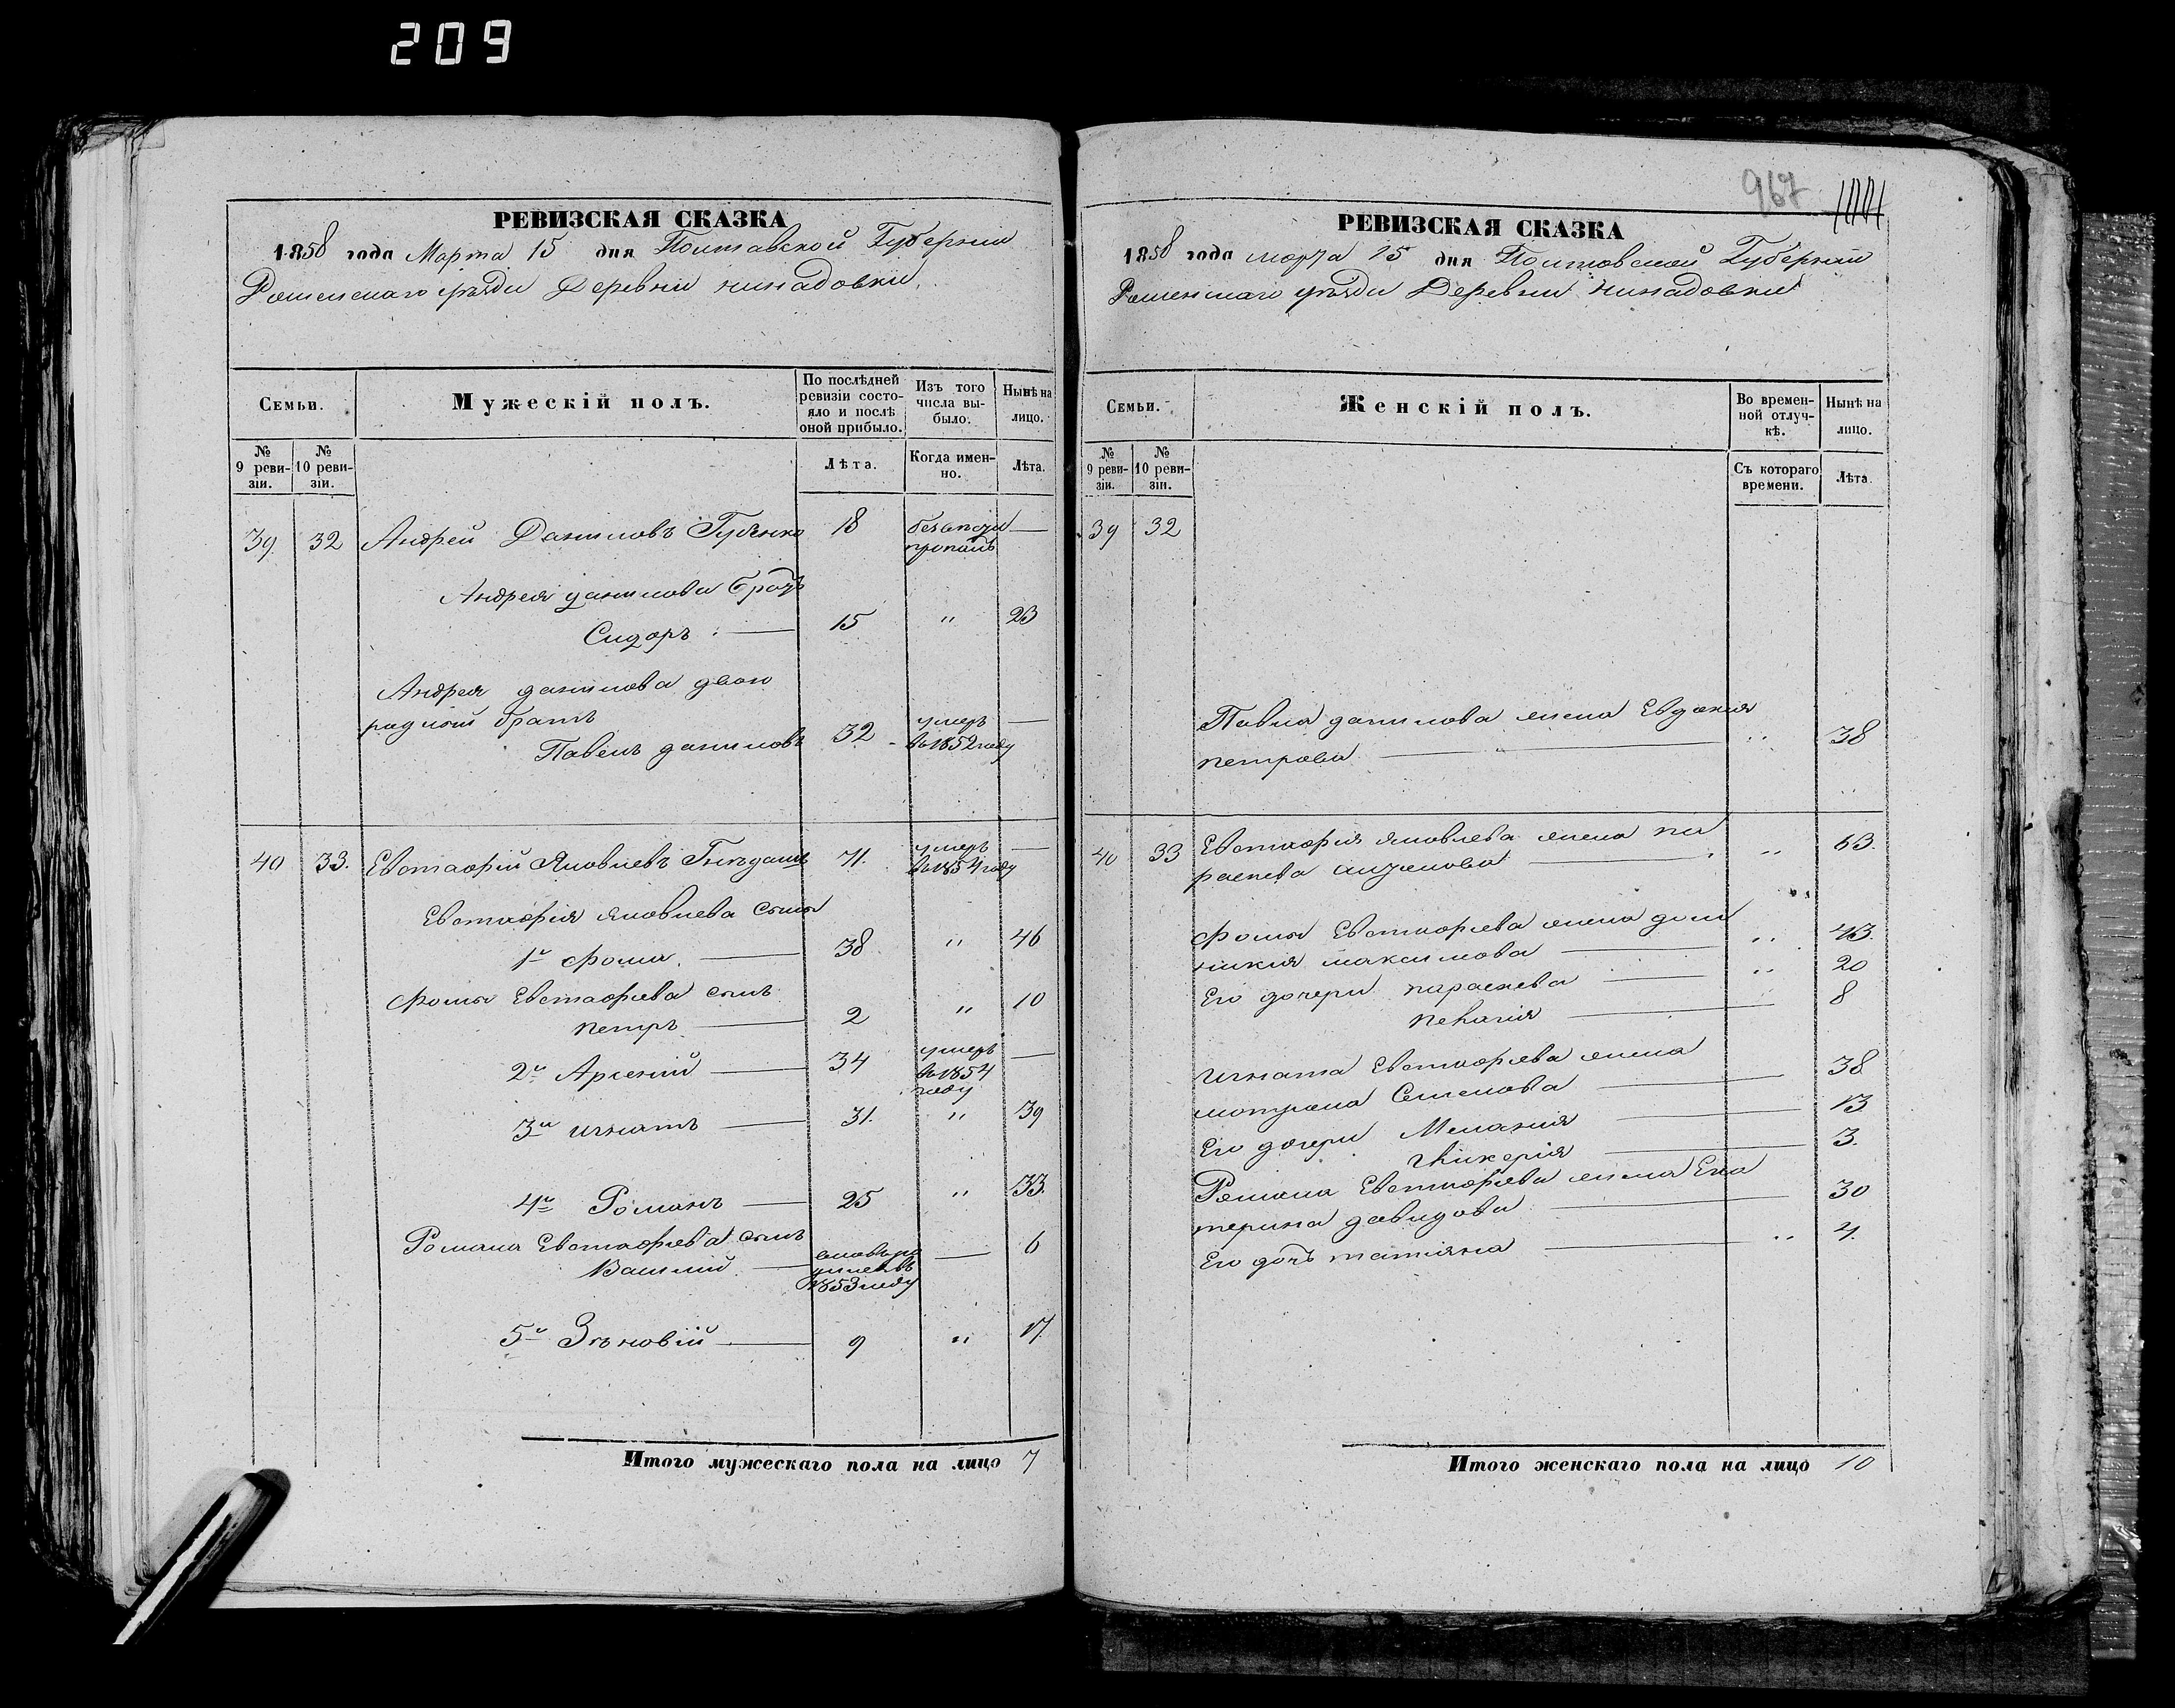 209
РЕВИЗСКАЯ СКАЗКА
1858 года Марта 15 дня Полтавской Губернии
Роменскаго уѣзда Деревни
Семьи.
Мужескій полъ.
По послѣдней ревизіи состояло и послѣ оной прибыло.
Изъ того числа выбыло.
Нынѣ на лицо.
№ 9 ревизіи.
№ 10 ревизіи.
Лѣта.
Когда именно.
Лѣта.
39 32 Андрей Даниловъ Губенко 18 безвѣсти —
пропалъ
Андрея данилова братъ
Сидоръ — 15 " 23
Андрея данилова двою
родной братъ
Павелъ даниловъ 32 умеръ —
въ 1852 году
40 33. Евстафій Яковлевъ 71. умеръ —
въ 1854 году
Евстафія яковлева сыны
1й Фома — 38 " 46
Фомы Евстафіева сынъ
петръ — 2 " 10
2й Арсеній — 34 умеръ —
въ 1854
году
3й игнатъ — 31. " 39
4й Романъ — 25 " 33.
Романа Евстафіева сынъ
Василий — — 6
1853 году
5й Зѣновій — 9 " 17
Итого мужескаго пола на лицо 7
967
РЕВИЗСКАЯ СКАЗКА
1858 года марта 15 дня Полтавской Губерніи
Роменскаго уѣзда Деревни
Семьи.
Женскій полъ.
Во временной отлучкѣ.
Нынѣ на лицо.
№ 9 ревизіи.
№ 10 ревизіи.
Съ котораго времени.
Лѣта.
39 32
Павла данилова жена Евдокія
петрова — " 38
40 33 Евстафія яковлева жена па
раскева — " 63.
Фомы Евстафіева жена дом
никія максимова — " 43.
Его дочери параскева — " 20
пелагія — " 8
игната Евстафіева жена
мотрона Семенова — 38
Его дочери Меланія — 13
гликерія — 3.
Романа Евстафіева жена Ека
терина давидова — 30
Его дочь татіяна — " 4.
Итого женскаго пола на лицо 10